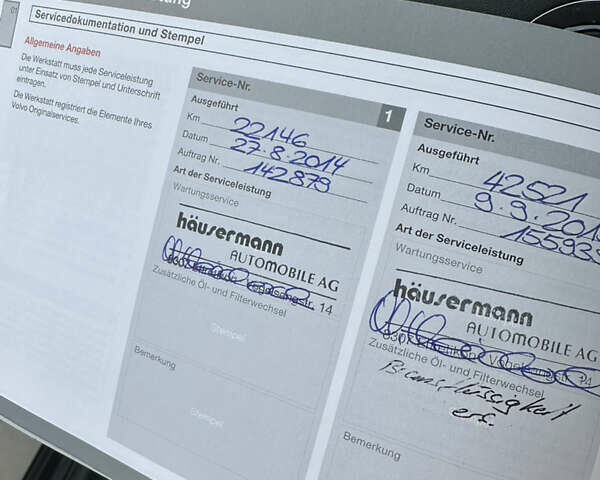 Servicedokumentation und Stempel
Allgemeine Angaben
Die Werkstatt muss jede Serviceleistung
unter Einsatz von Stempel und Unterschrift
eintragen.
Die Werkstatt registriert die Elemente Ihres
Volvo Originalservices.
Service-Nr.
1
Ausgeführt
Km 22146
Datum 27.8.2014
Auftrag Nr. 142879
Art der Serviceleistung
Wartungsservice
häusermann
AUTOMOBILE AG
8307 14
Zusätzliche Öl- und Filterwechsel
Stempel
Bemerkung
Stempel
Service-Nr.
Ausgeführt
Km 42521
Datum 9.9.201
Auftrag Nr. 155939
Art der Serviceleistung
Wartungsservice
häusermann
AUTOMOBILE AG
8307 14
Zusätzliche Öl- und Filterwechsel
Bremsflüssigkeit
ers.
Bemerkung